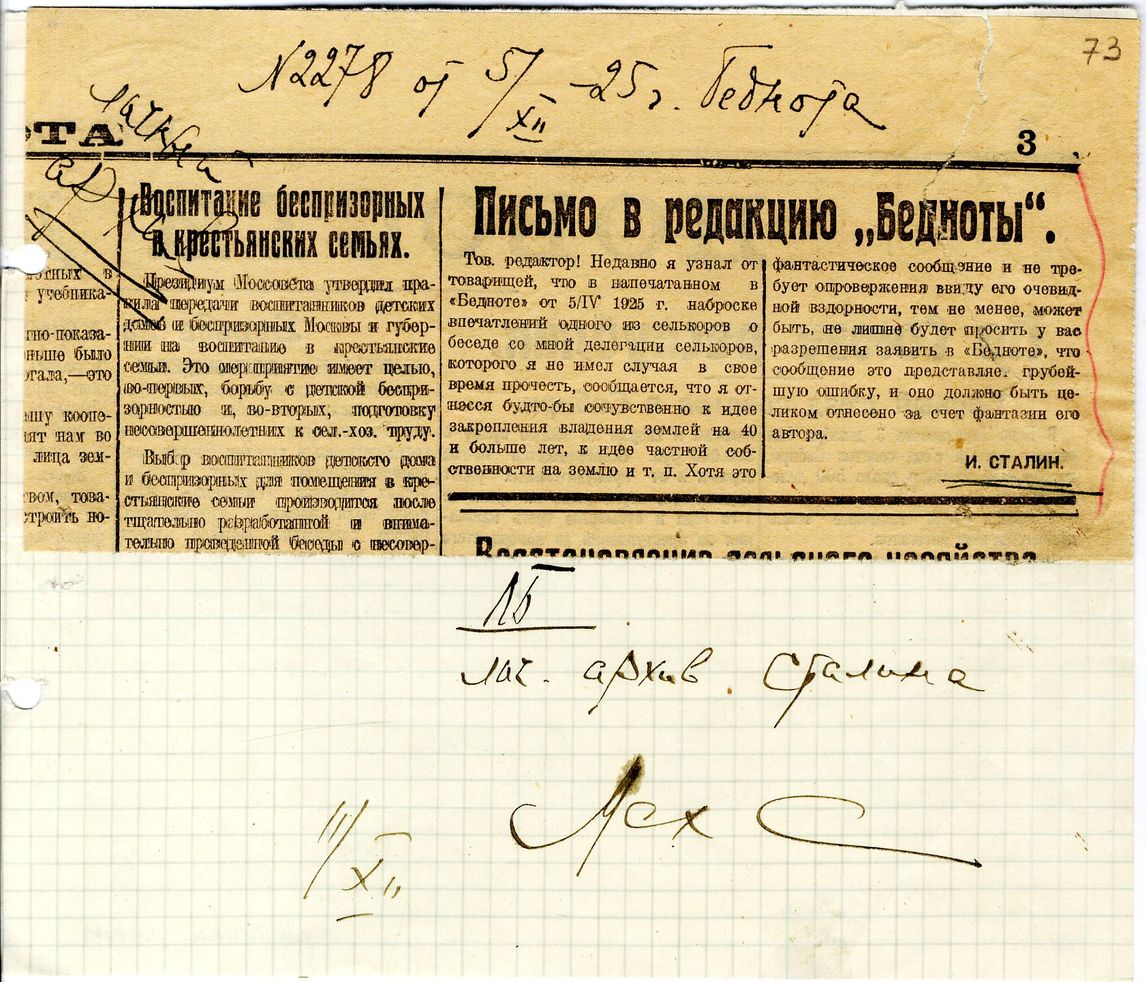 73
N2278 от 5/XII -25 г. Беднота
личный
архив
ОТА
3
отных в
учебника-
тно-показа-
ньше было
гала,—это
ину коопе-
ят нам во
лица зем-
вом, това-
троить но-
Воспитание беспризорных
в крестьянских семьях.
Президиум Моссовета утвердил пра-
вила передачи воспитанников детских
домов и беспризорных Москвы и губер-
нии на воспитание в крестьянские
семьи. Это мероприятие имеет целью,
во-первых, борьбу с детской беспри-
зорностью и, во-вторых, подготовку
несовершеннолетних к сел.-хоз. труду.
Выбор воспитанников детского дома
и беспризорных для помещения в кре-
стьянские семьи производится после
тщательно разработанной и внима-
тельно проведенной беседы с несовер-
Письмо в редакцию „Бедноты“.
Тов. редактор! Недавно я узнал от
товарищей, что в напечатанном в
«Бедноте» от 5/IV 1925 г. наброске
впечатлений одного из селькоров о
беседе со мной делегации селькоров,
которого я не имел случая в свое
время прочесть, сообщается, что я от-
несся будто-бы сочувственно к идее
закрепления владения землей на 40
и больше лет, к идее частной соб-
ственности на землю и т. п. Хотя это
фантастическое сообщение и не тре-
бует опровержения ввиду его очевид-
ной вздорности, тем не менее, может
быть, не лишне будет просить у вас
разрешения заявить в «Бедноте», что
сообщение это представляе. грубей-
шую ошибку, и оно должно быть це-
ликом отнесено за счет фантазии его
автора.
И. СТАЛИН.
Восстановление сельского хозяйства
лич. архив Сталина
11/XII